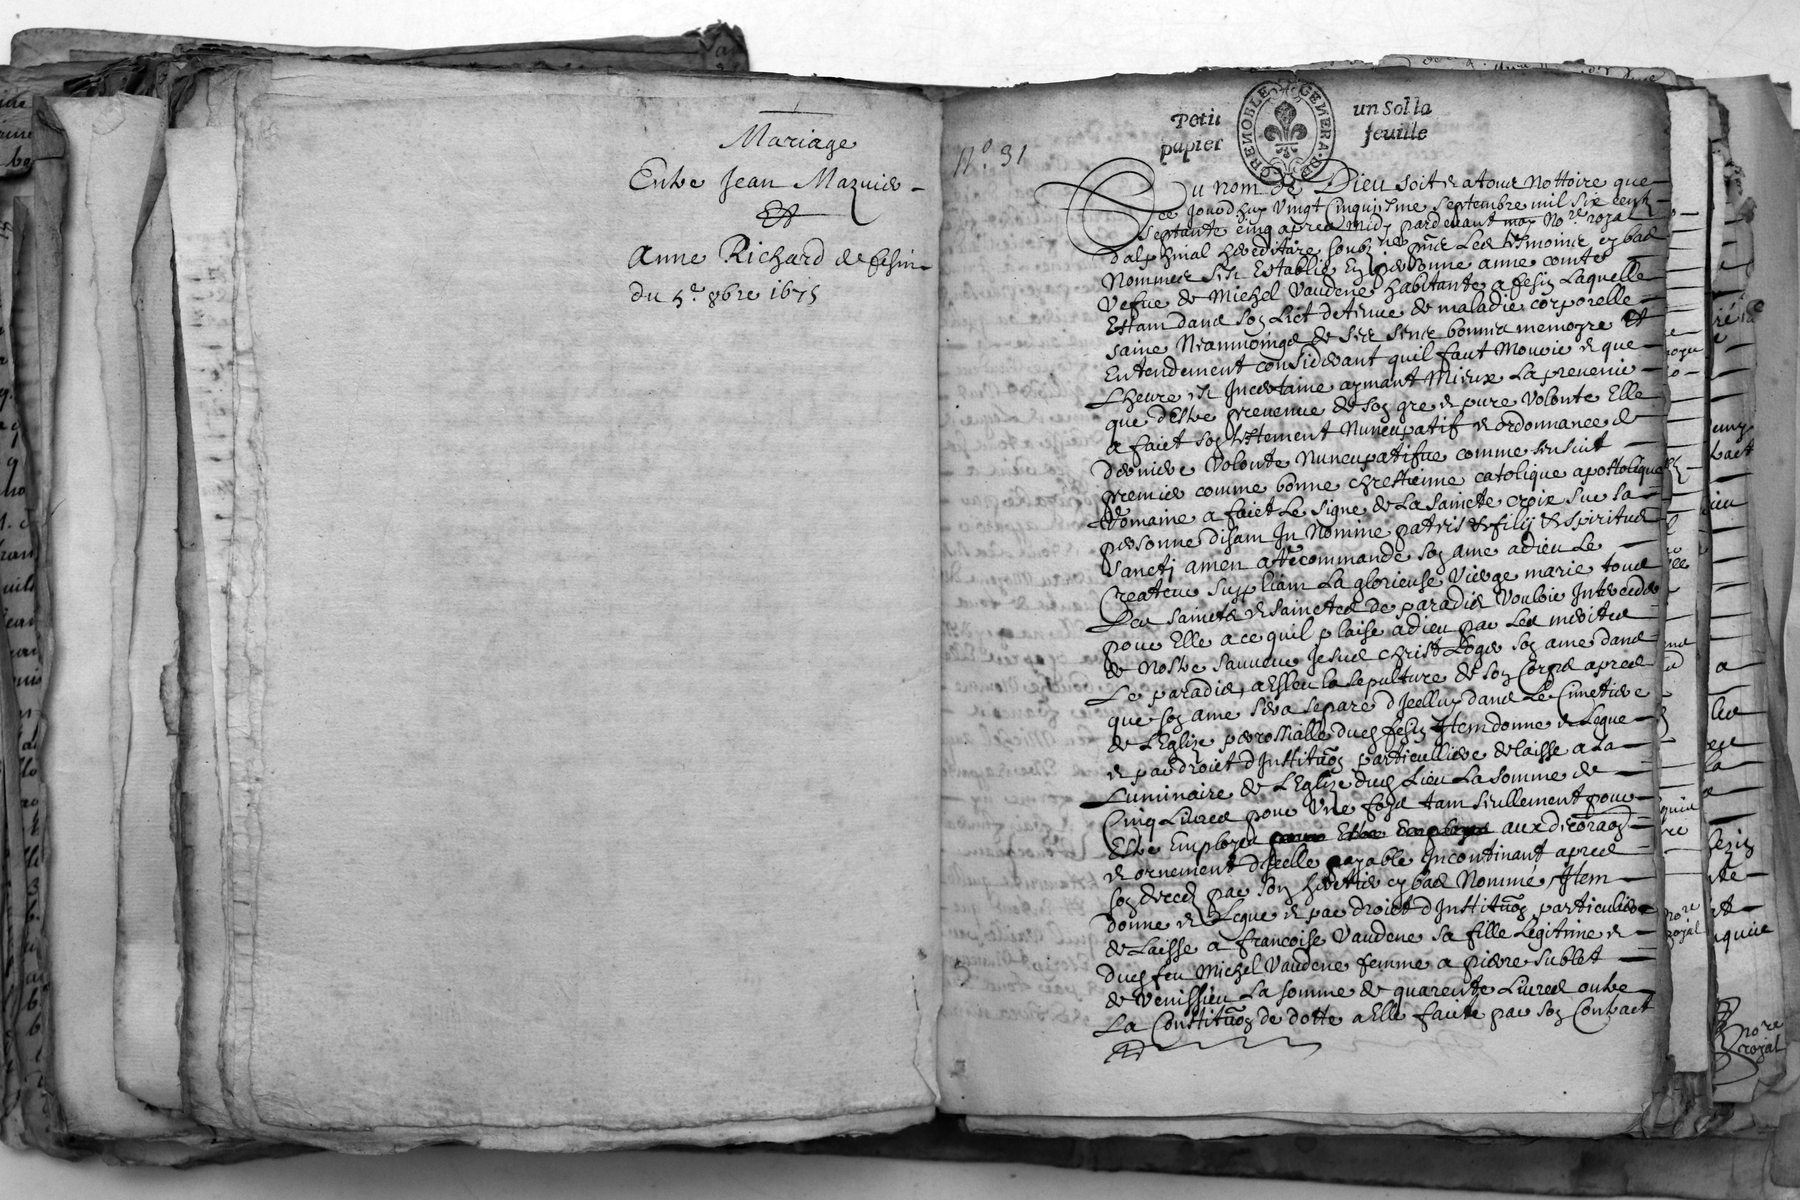 Mariage
Entre Jean Mazuier
Et
Anne Richard de fesin
du 5e 8bre 1675
Petit papier
un sol la feuille
GRENOBLE GENERA DE
No. 31
Du nom de Dieu soit et a tous Nottoire que
ce jourdhuy vingt cinquiesme septembre mil six cent
septante cinq apres midy pardevant moy No.re royal
dalphinal hereditaire soubzne pnt Les tesmoins cy bas
Nommes sest Establie En personne anne comte
vefue de Michel vaudene habitante a fesin Laquelle
Estant dans son Lict detenue de maladie corporelle
saine Neanmoings de ses sens bonne memoyre Et
Entendement considerant quil faut Mourir et que
Lheure est Incertaine aymant Mieux La prevenir
que destre prevenue de son gre et pure volonte Elle
a faict son testement Nuncupatif et ordonnance de
derniere volonte Nuncupatifue comme sensuit
premier comme bonne chrestienne catolique apostolique
Romaine a faict Le signe de La saincte croix sur sa
personne disant In Nomine patris et filij et spiritus
sancti amen a recommande son ame a dieu Le
Createur suppliant La glorieuse vierge marie tous
Les saincts et sainctes de paradis vouloir Interceder
pour Elle a ce quil plaise a dieu par Les merites
de Nostre sauveur Jesus christ Loger son ame dans
Le paradis, a Esleu la sepulture de son Corps apres
que son ame sera separe dJcelluy dans Le Cimetiere
de LEglize parrossialle dud fesin Jtem donne et Legue
et par droict dInstituon particulliere delaisse a La
Luminaire de LEglize dud Lieu La somme de
Cinq Livres pour Une foys tant seullement pour
Estre Employer aux decoraons
et ornement dJcelle payable Incontinant apres
son deces par son heretier cy bas Nommé, Jtem
donne et Legue et par droict dInstituon particuliere
de Laisse a francoise vaudene sa fille Legitime et
dud feu Michel vaudene femme a pierre sublet
de venissieu La somme de quarente Livres outre
La Constituon de dotte a Elle faicte par son Contract